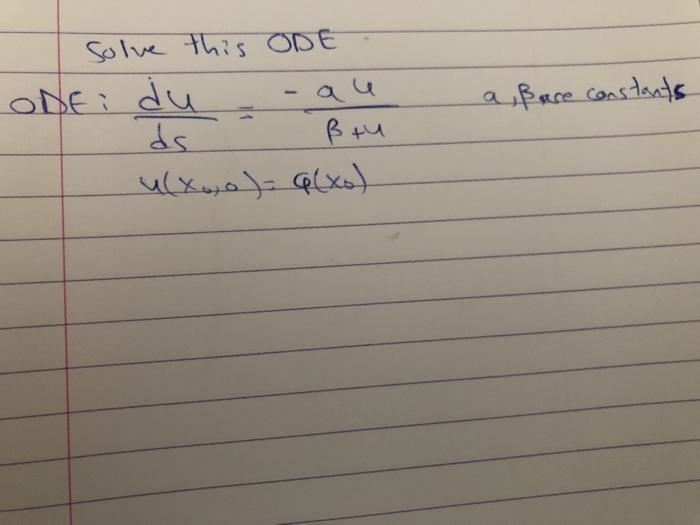 Solve this ODE
ODE: du/ds = -au/β+u a, β are constants
u(x₀,0) = φ(x₀)